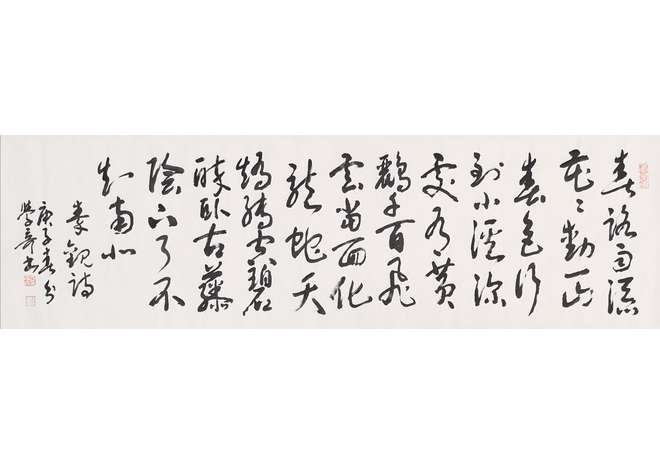 春路雨添
花〻動一山
春色行
到小溪深
處有黃
鸝千百飛
雲當面化
龍蛇夭
矯轉空碧
醉臥古藤
陰下了不
知南北
秦觀詩
庚子春分
書